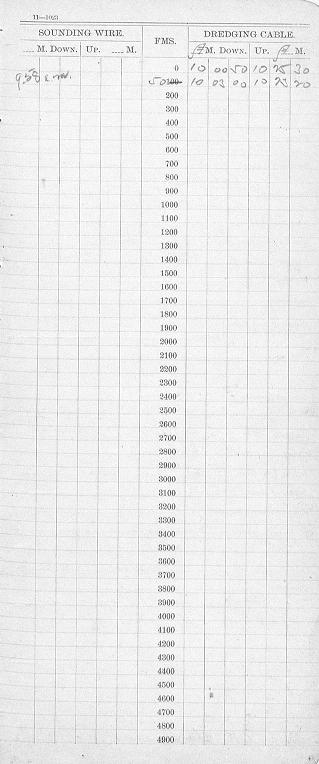 11—1023
SOUNDING WIRE. FMS. DREDGING CABLE.
M. DOWN. UP. M. A M. DOWN. UP. A M.
9.58 0 10 00 50 10 25 30
50 100 10 03 00 10 23 20
200
300
400
500
600
700
800
900
1000
1100
1200
1300
1400
1500
1600
1700
1800
1900
2000
2100
2200
2300
2400
2500
2600
2700
2800
2900
3000
3100
3200
3300
3400
3500
3600
3700
3800
3900
4000
4100
4200
4300
4400
4500
4600
4700
4800
4900